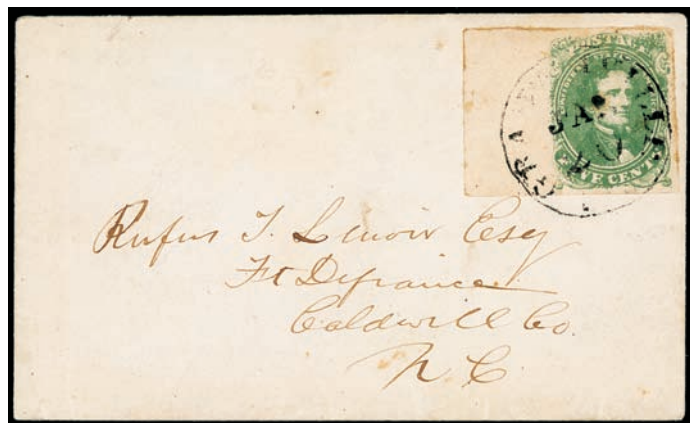 POSTAGE
FIVE CENTS
JAN
Rufus T. Lenoir Esq
Ft Defiance
Caldwell Co.
N. C.